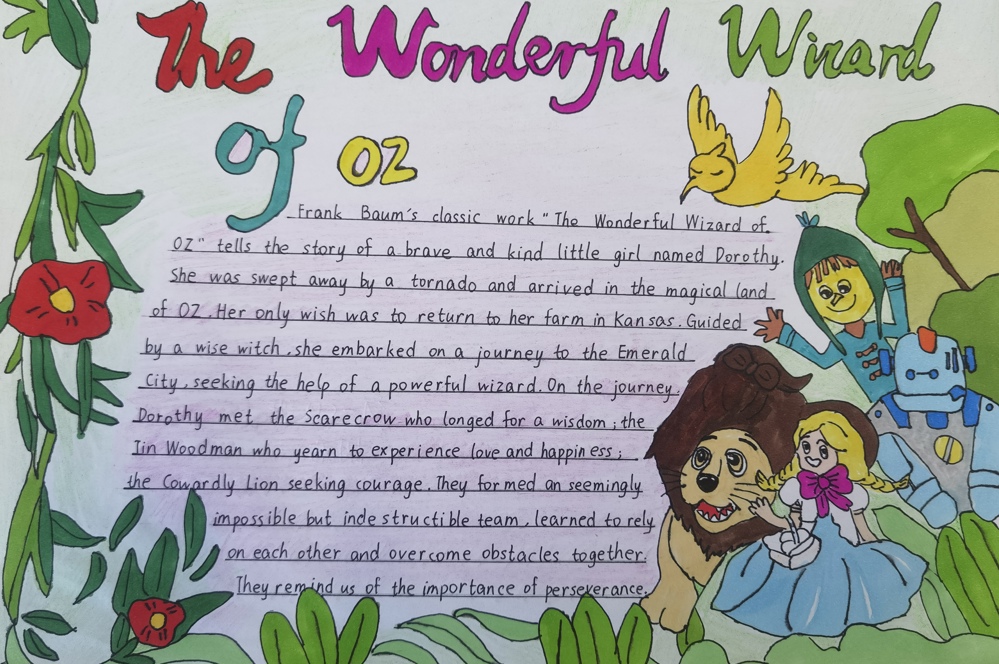 The Wonderful Wizard
of OZ
Frank Baum's classic work "The Wonderful Wizard of
OZ" tells the story of a brave and kind little girl named Dorothy.
She was swept away by a tornado and arrived in the magical land
of OZ. Her only wish was to return to her farm in Kansas. Guided
by a wise witch, she embarked on a journey to the Emerald
City, seeking the help of a powerful wizard. On the journey,
Dorothy met the Scarecrow who longed for a wisdom; the
Tin Woodman who yearn to experience love and happiness;
the Cowardly Lion seeking courage. They formed an seemingly
impossible but indestructible team, learned to rely
on each other and overcome obstacles together.
They remind us of the importance of perseverance.